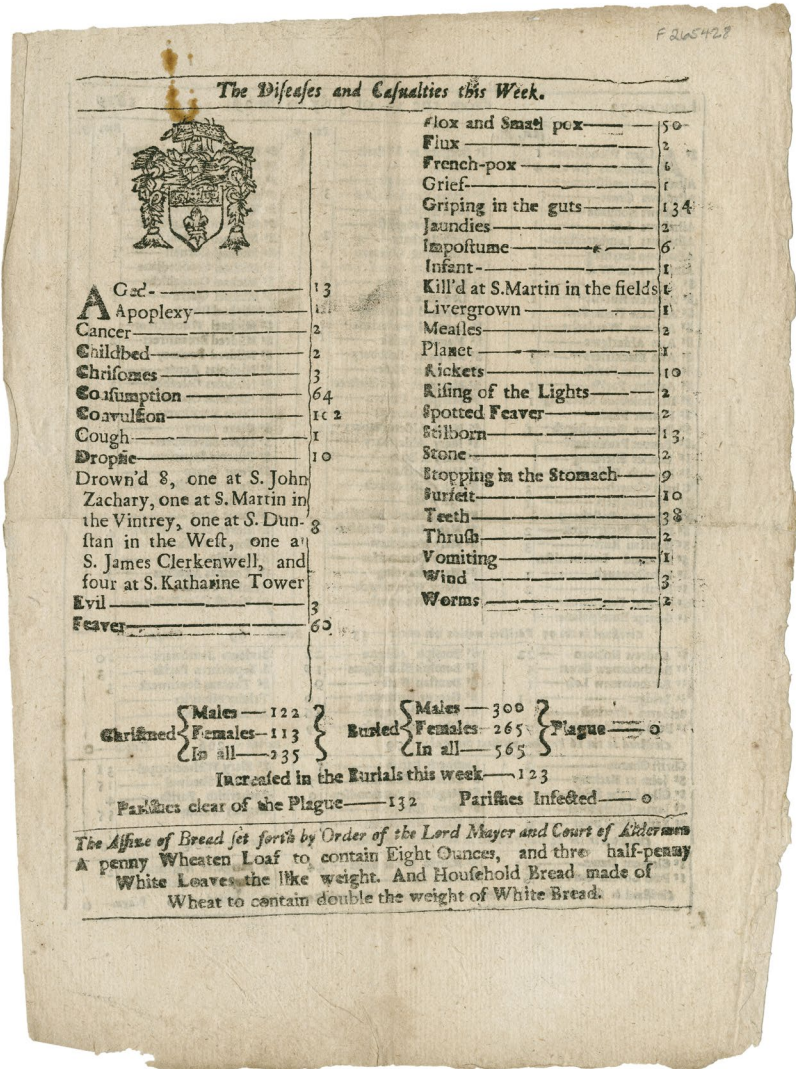 F 265428
The Diſeaſes and Caſualties this Week.
AGed- 13
Apoplexy 1
Cancer 2
Childbed 2
Chriſomes 3
Conſumption 64
Convulſion 102
Cough 1
Dropſie 10
Drown'd 8, one at S. John
Zachary, one at S. Martin in
the Vintrey, one at S. Dun- 8
ſtan in the Weſt, one a
S. James Clerkenwell, and
four at S. Katharine Tower
Evil 3
Feaver 60
Flox and Small pox 50
Flux 2
French-pox
Grief 1
Griping in the guts 134
Jaundies 2
Impoſtume 6
Infant 1
Kill'd at S. Martin in the fields 1
Livergrown 1
Meaſles 2
Planet 1
Rickets 10
Riſing of the Lights 2
Spotted Feaver 2
Stilborn 13
Stone 2
Stopping in the Stomach 9
Surfeit 10
Teeth 38
Thruſh 2
Vomiting 1
Wind 3
Worms 2
Chriſtned { Males 122 Females 113 In all 235 }
Buried { Males 300 Females 265 In all 565 } Plague 0
Increaſed in the Burials this week 123
Pariſhes clear of the Plague 132 Pariſhes Infected 0
The Aſſize of Bread ſet forth by Order of the Lord Mayer and Court of Aldermen
A penny Wheaten Loaf to contain Eight Ounces, and thre half-penny
White Loaves the like weight. And Houſehold Bread made of
Wheat to contain double the weight of White Bread.